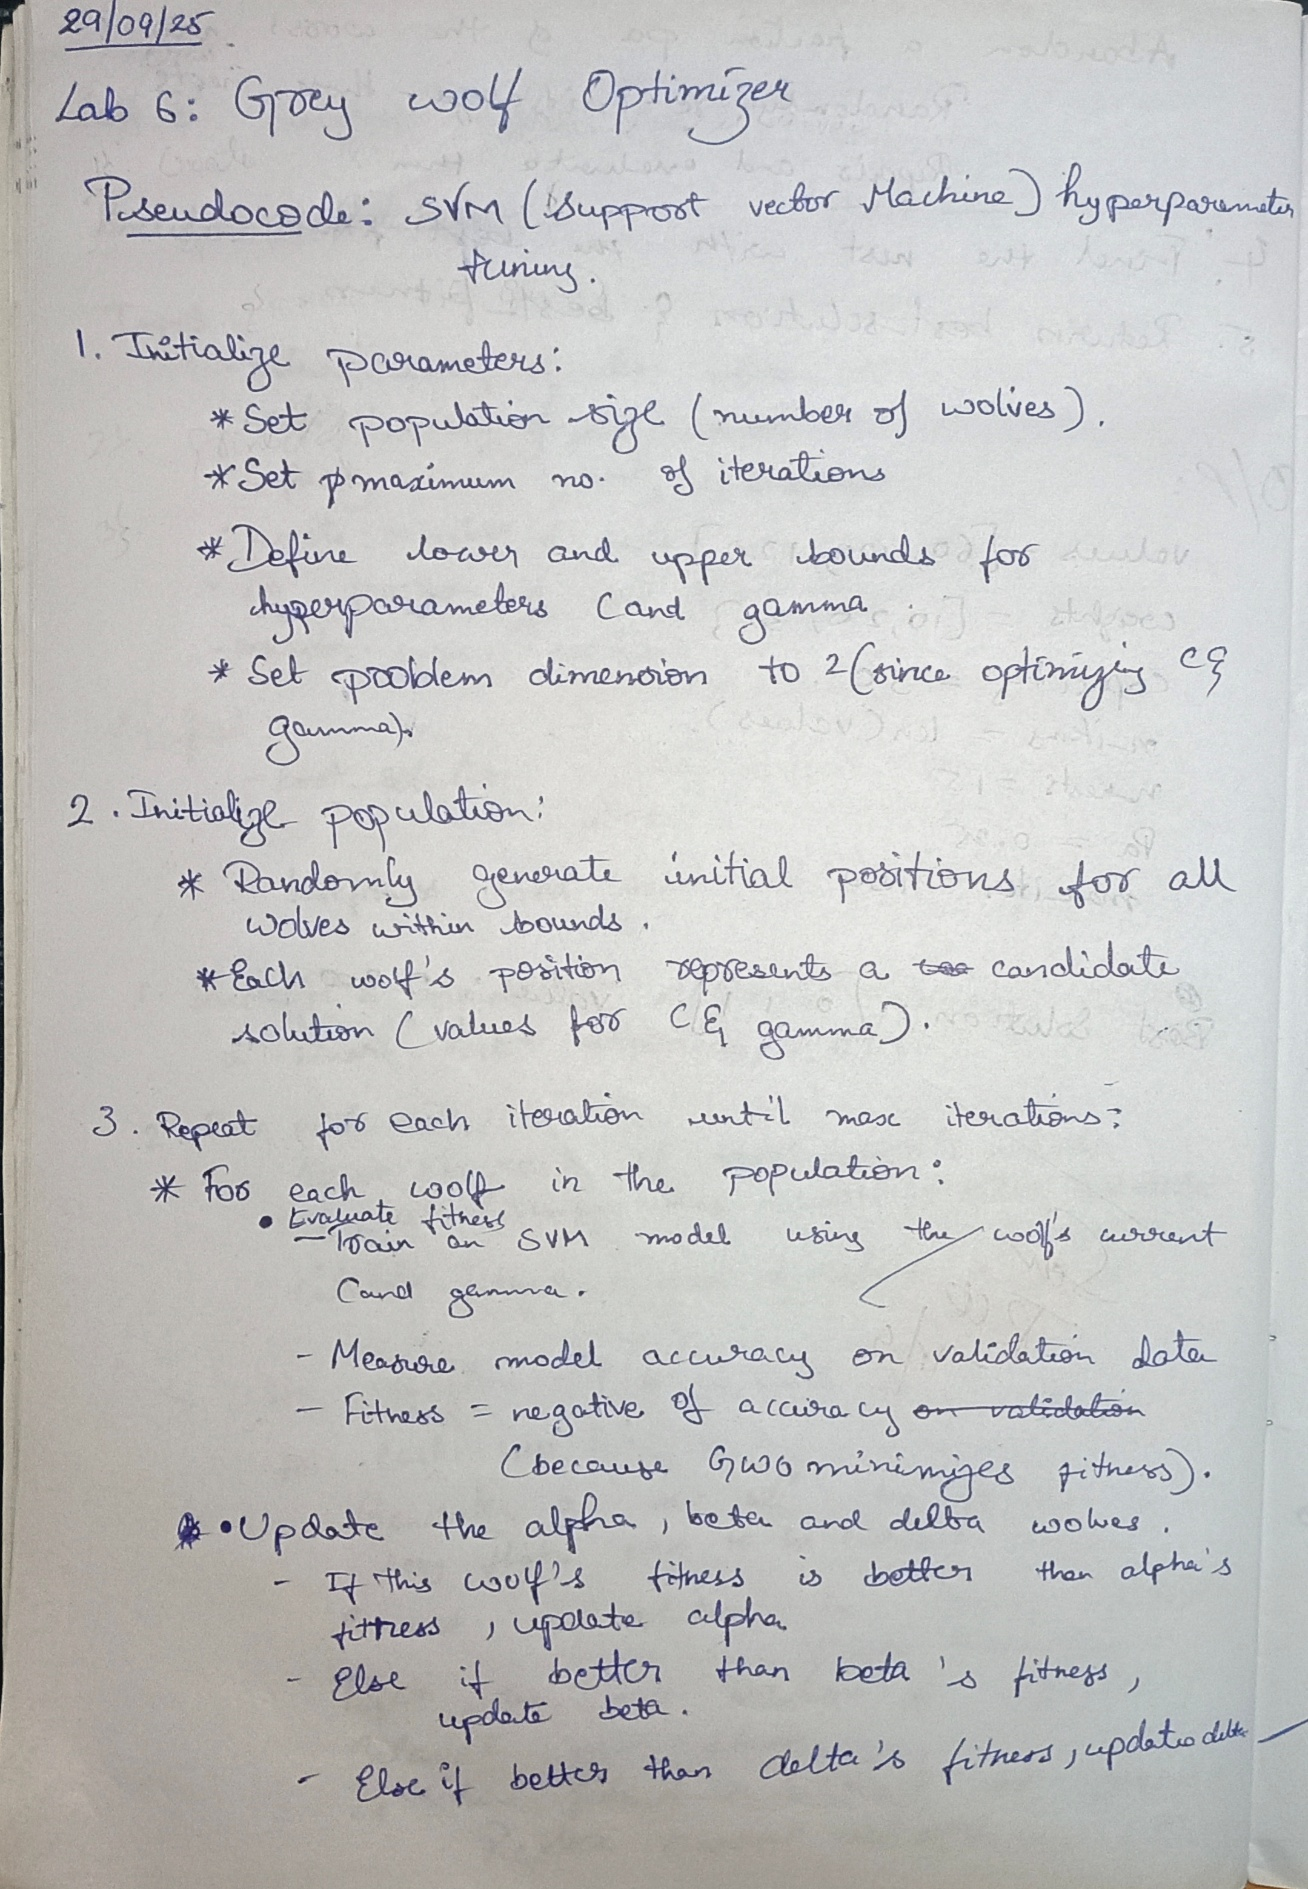 29/09/25
Lab 6: Grey wolf Optimizer
Pseudocode: SVM (Support vector Machine) hyperparameter
tuning.
1. Initialize parameters:
* Set population size (number of wolves).
* Set maximum no. of iterations
* Define lower and upper bounds for
hyperparameters C and gamma.
* Set problem dimension to 2 (since optimizing C &
gamma).
2. Initialize population:
* Randomly generate initial positions for all
wolves within bounds.
* Each wolf's position represents a candidate
solution (values for C & gamma).
3. Repeat for each iteration until max iterations:
* For each wolf in the population:
• Evaluate fitness
- Train an SVM model using the wolf's current
C and gamma.
- Measure model accuracy on validation data
- Fitness = negative of accuracy on validation
(because GWO minimizes fitness).
• Update the alpha, beta and delta wolves.
- If this wolf's fitness is better than alpha's
fitness, update alpha
- Else if better than beta's fitness,
update beta.
- Else if better than delta's fitness, update delta